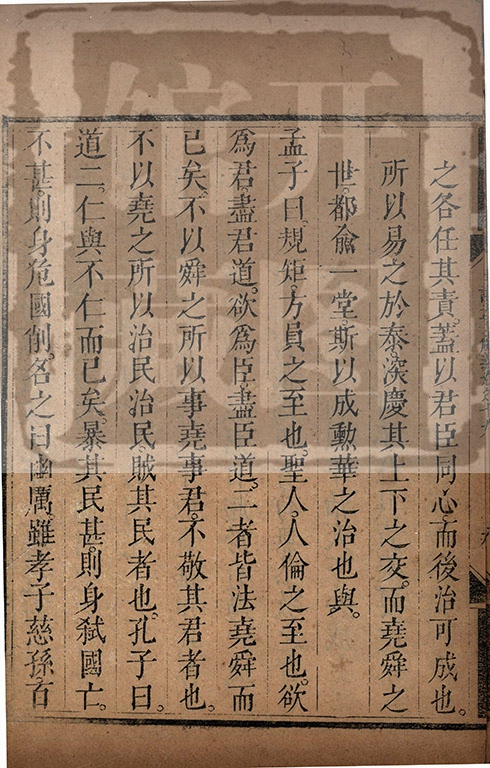 之各任其責蓋以君臣同心而後治可成也。
所以易之於泰深慶其上下之交。而堯舜之
世。都兪一堂斯以成勳華之治也與。
孟子曰。規矩。方員之至也。聖人。人倫之至也。欲
爲君。盡君道。欲爲臣。盡臣道。二者皆法堯舜而
已矣。不以舜之所以事堯事君。不敬其君者也。
不以堯之所以治民治民。賊其民者也。孔子曰。
道二。仁與不仁而已矣。暴其民甚。則身弒國亡。
不甚。則身危國削。名之曰幽厲。雖孝子慈孫。百